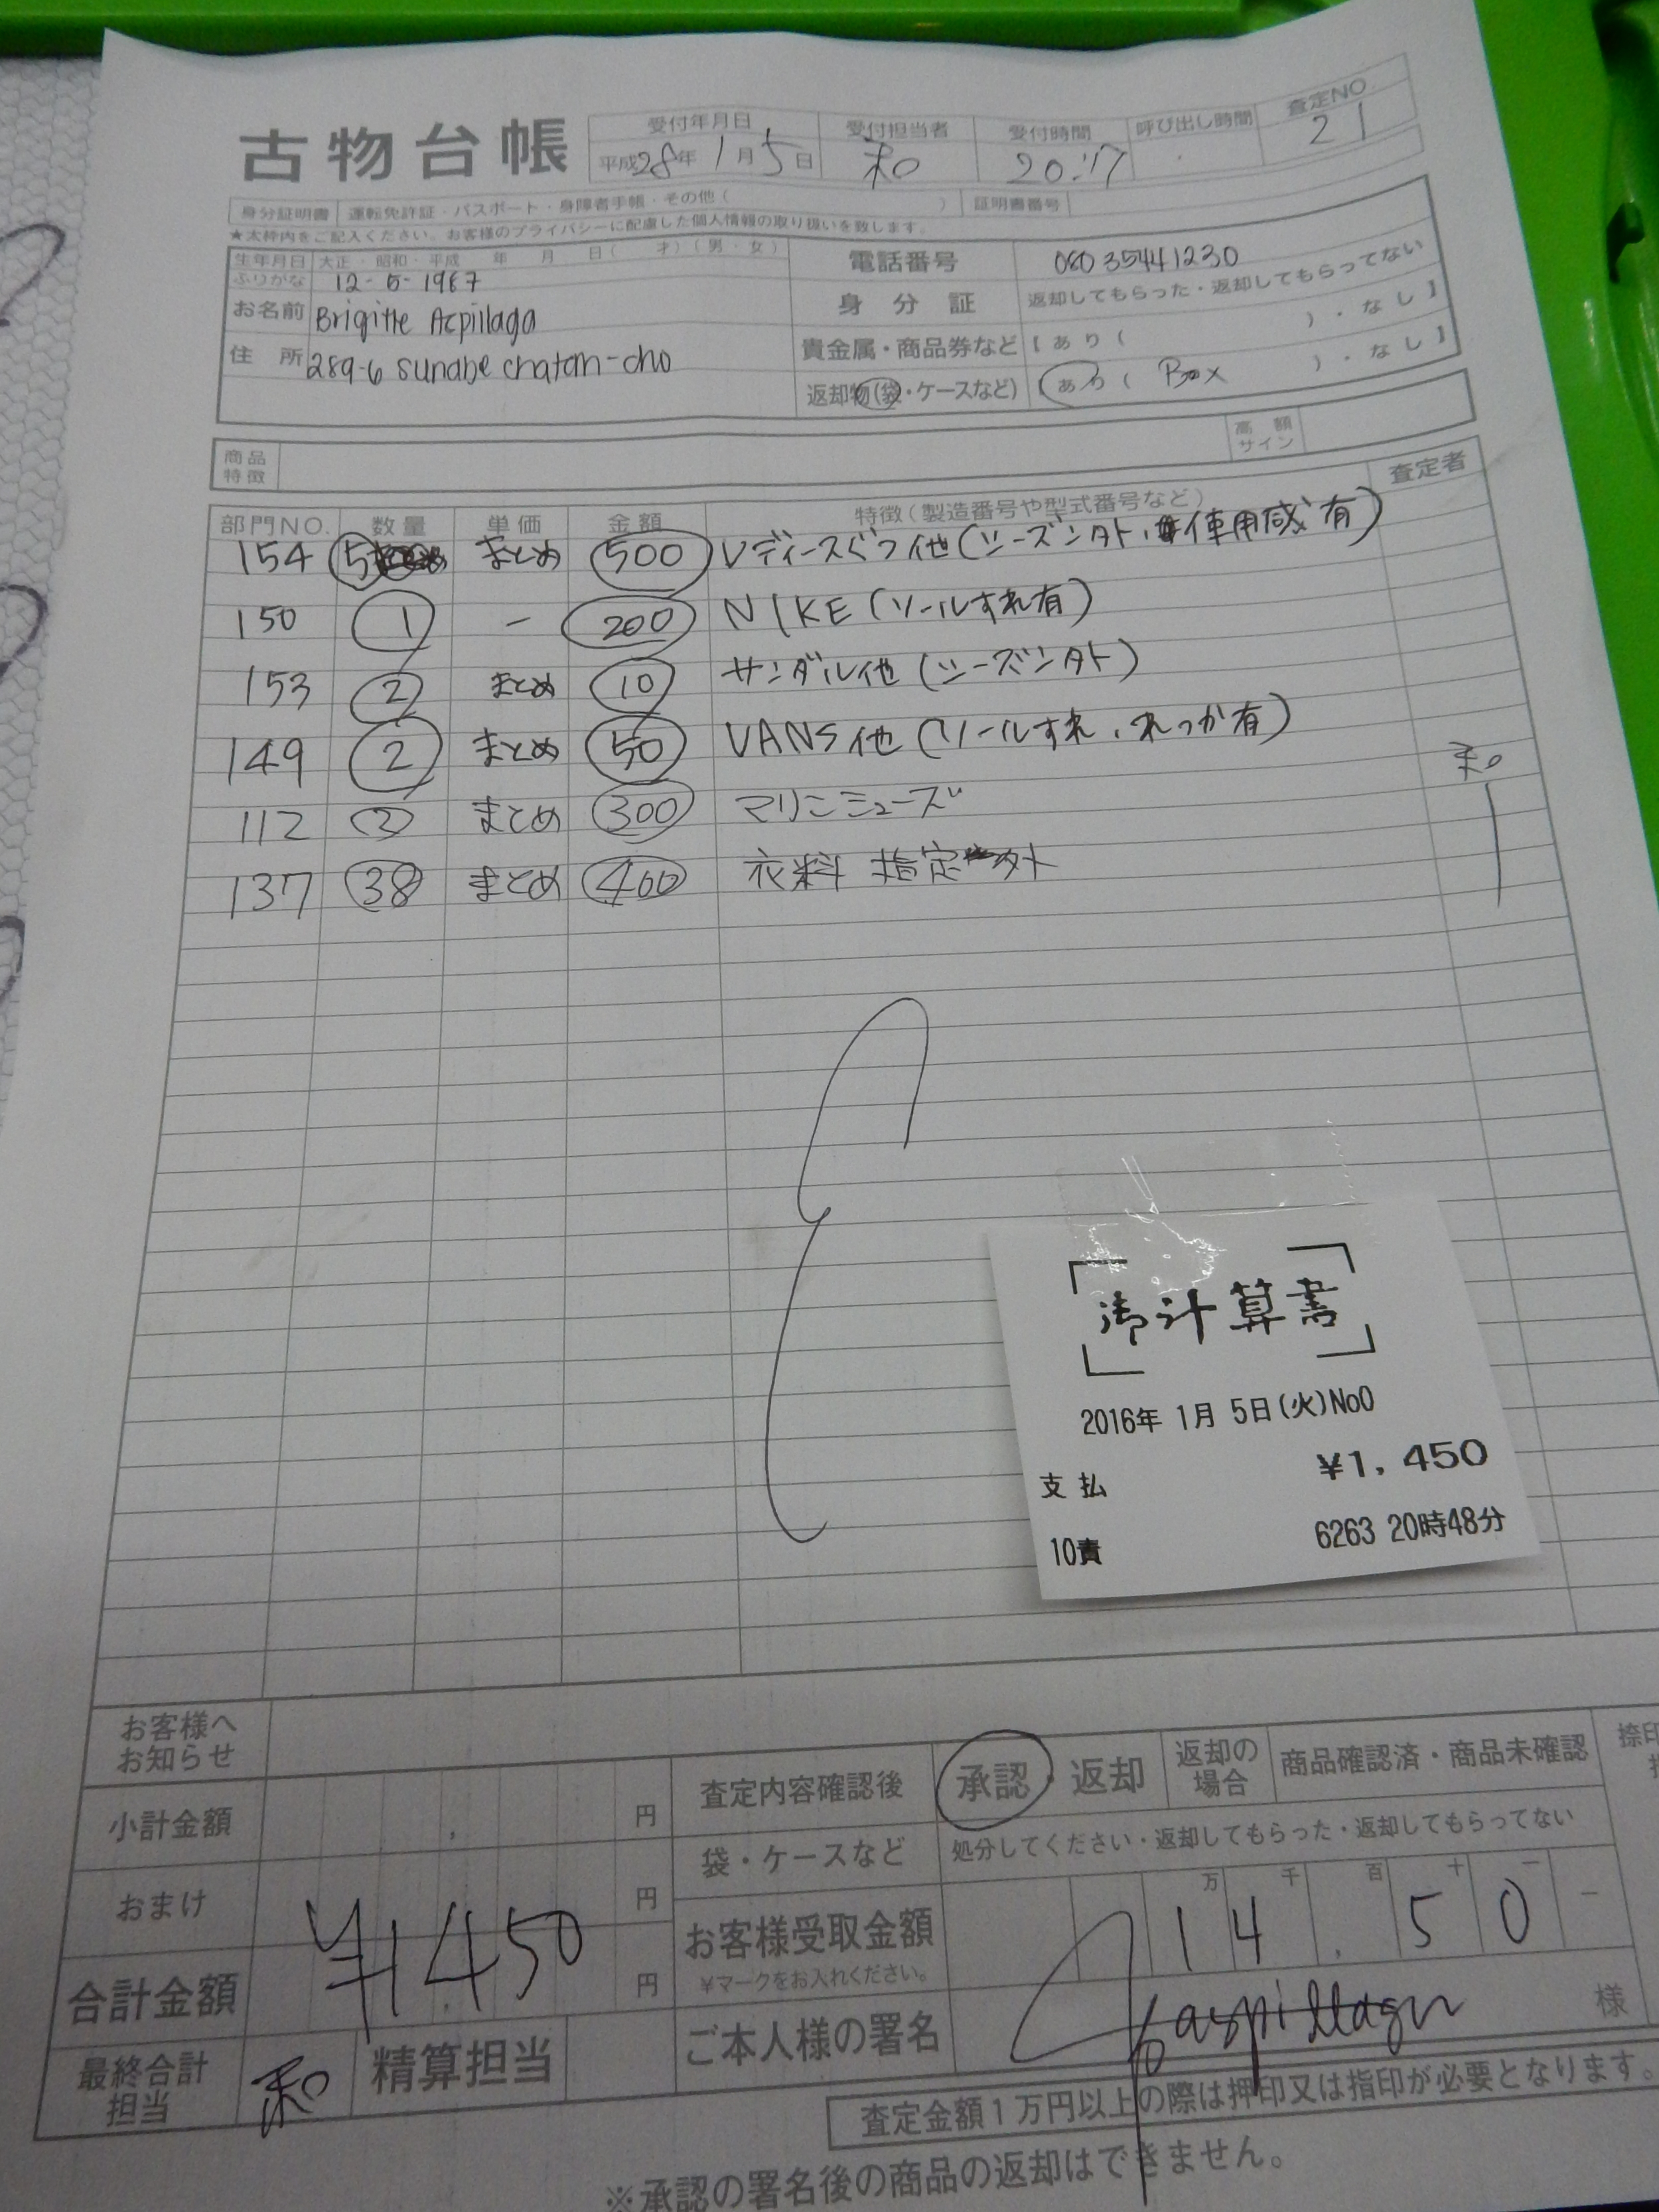 古物台帳
受付年月日 受付担当者 受付時間 呼び出し時間 査定NO.
平成28年 1月 5日 和 20:17 21
身分証明書 運転免許証・パスポート・身障者手帳・その他( ) 証明書番号
★太枠内をご記入ください。お客様のプライバシーに配慮した個人情報の取り扱いを致します。
生年月日 大正・昭和・平成 年 月 日( 才)(男・女)
ふりがな 12-5-1967
お名前 Brigitte Acpillaga
住所 289-6 sunabe chatan-cho
電話番号 080 35441230
身分証 返却してもらった・返却してもらってない
貴金属・商品券など【あり( )・なし】
返却物(袋・ケースなど) あり( Box )・なし】
商品特徴 高額サイン
部門NO. 数量 単価 金額 特徴(製造番号や型式番号など) 査定者
154 5 まとめ 500 レディースぐつ他(シーズンタト、使用感有)
150 1 ー 200 NIKE(ソールすれ有)
153 2 まとめ 10 サンダル他(シーズンタト)
149 2 まとめ 50 VANS他(ソールすれ、れっか有) 和
112 まとめ 300 マリンシューズ
137 38 まとめ 400 衣料 指定外
御計算書
2016年 1月 5日(火)No0
支払 ¥1,450
10責 6263 20時48分
お客様へお知らせ
小計金額 円
おまけ 円
合計金額 ¥1450 円
最終合計担当 和 精算担当
査定内容確認後 承認・返却 返却の場合 商品確認済・商品未確認
袋・ケースなど 処分してください・返却してもらった・返却してもらってない
お客様受取金額 万 千 百 十 一
¥マークをお入れください。 14,50 -
ご本人様の署名 様
査定金額1万円以上の際は押印又は指印が必要となります。
※承認の署名後の商品の返却はできません。